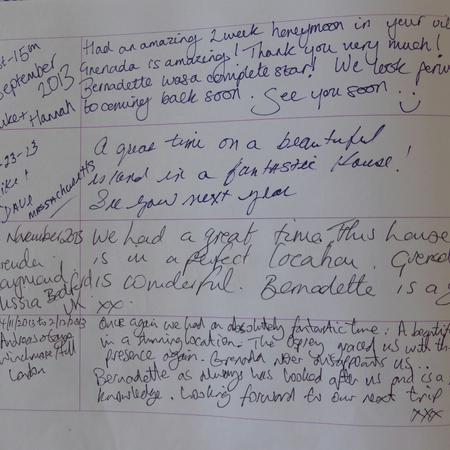 st-15th
September
2013
Luke + Hannah
Had an amazing 2 week honeymoon in your
Grenada is amazing! Thank you very much!
Bernadette was a complete star! We look
to coming back soon. See you soon
-23-13
Mike +
Dave
Massachusetts
A great time on a beautiful
island in a fantastic house!
See you next year
November 2013
Brenda
Raymond
Bedford
UK
We had a great time. This house
is in a perfect location. Grenada
is wonderful. Bernadette is a
xx.
4/11/2013 to 2/12/2013
Winchmore Hill
London
Once again we had an absolutely fantastic time. A
in a stunning location. The Osprey graced us with
presence again. Grenada never disappoints us..
Bernadette as always has looked after us and is a
knowledge. Looking forward to our next trip
xxx